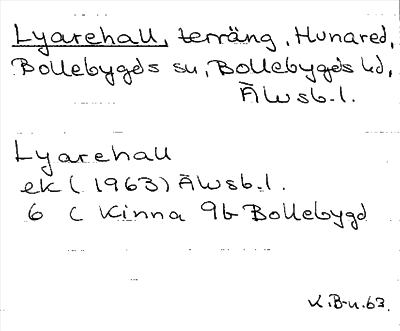 Lyarehall, terräng, Hunared,
Bollebygds sn, Bollebygds hd,
Älvsb.l.
Lyarehall
ek (1963) Älvsb.l.
6 C Kinna 9b Bollebygd
K.B-n.63.